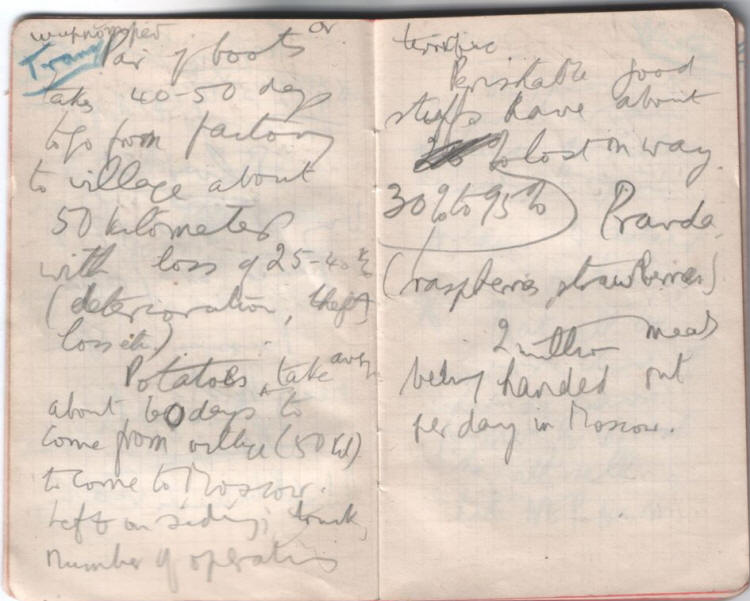 or
Trans Pair of boots
takes 40-50 days
to go from factory
to village about
50 kilometres
with loss of 25-40%
(deterioration, theft,
loss etc)
Potatoes take
about 60 days to
come from village (50 kil)
to come to Moscow.
Left on siding; trucks,
number of operations
terrific
Perishable food
stuffs have about
% lost on way.
30% to 95% Pravda.
(raspberries, strawberries)
2 million meals
being handed out
per day in Moscow.